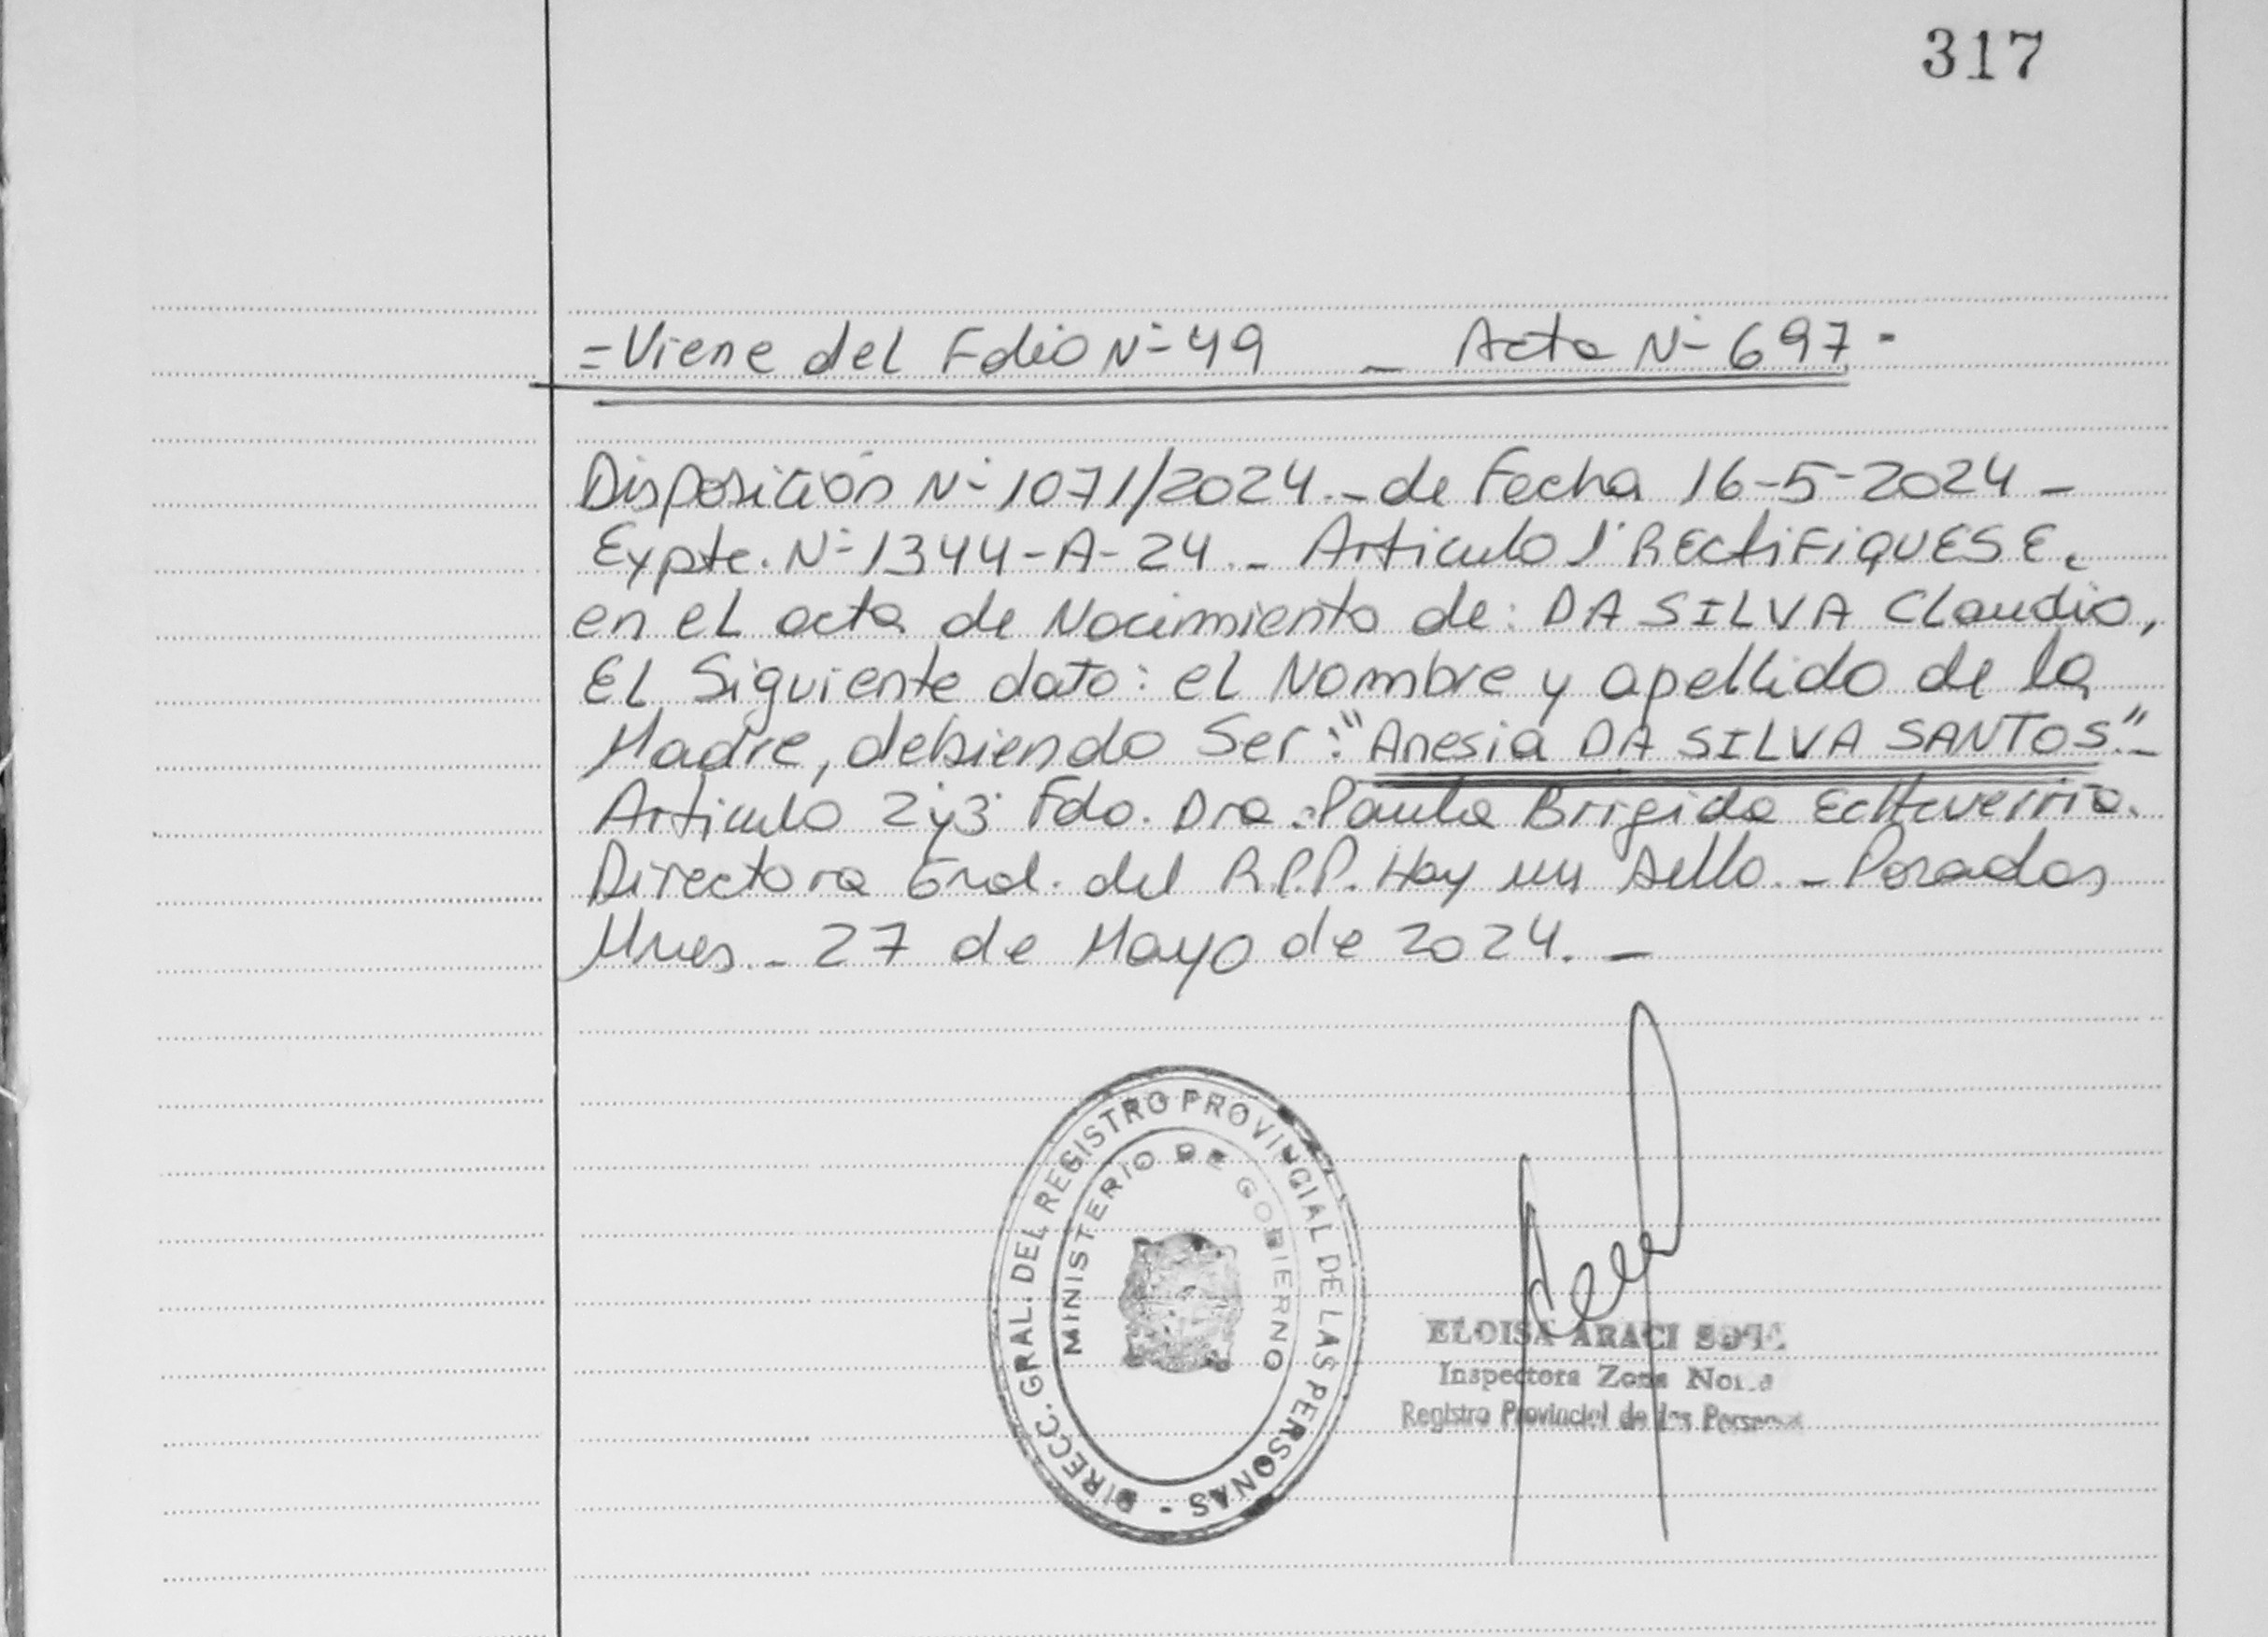 317
=Viene del Folio Nº 49 _ Acta Nº 697-
Disposición Nº 1071/2024._ de Fecha 16-5-2024_
Expte. Nº 1344-A-24._ Articulo 1º RECtiFiQUESE.
en el acta de Nacimiento de: DA SILVA Claudio,
El Siguiente dato: el Nombre y apellido de la
Madre, debiendo Ser: "Anesia DA SILVA SANTOS"_
Articulo 2 y 3º Fdo. Dra. Paula Brigida Echeverria.
Directora Gral. del R.P.P. Hay un Sello._ Posadas
Mnes._ 27 de Mayo de 2024._
DIRECC. GRAL. DEL REGISTRO PROVINCIAL DE LAS PERSONAS -
MINISTERIO DE GOBIERNO
ELOISA ARACI
Inspectora Zona
Registro Provincial de las